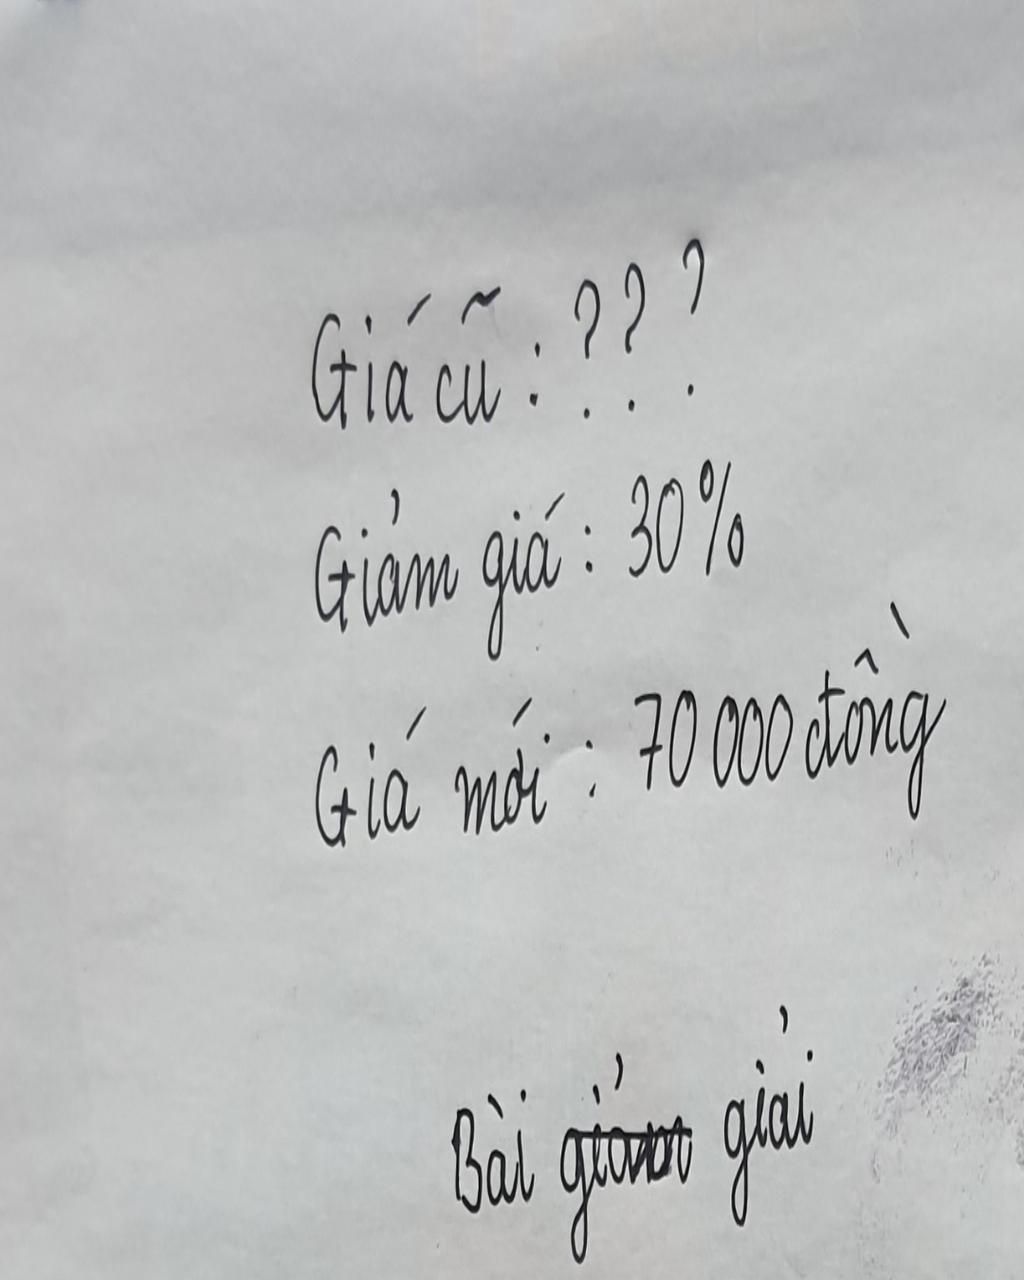 Giá cũ : ???
Giảm giá : 30%
Giá mới : 70 000 đồng
Bài giải